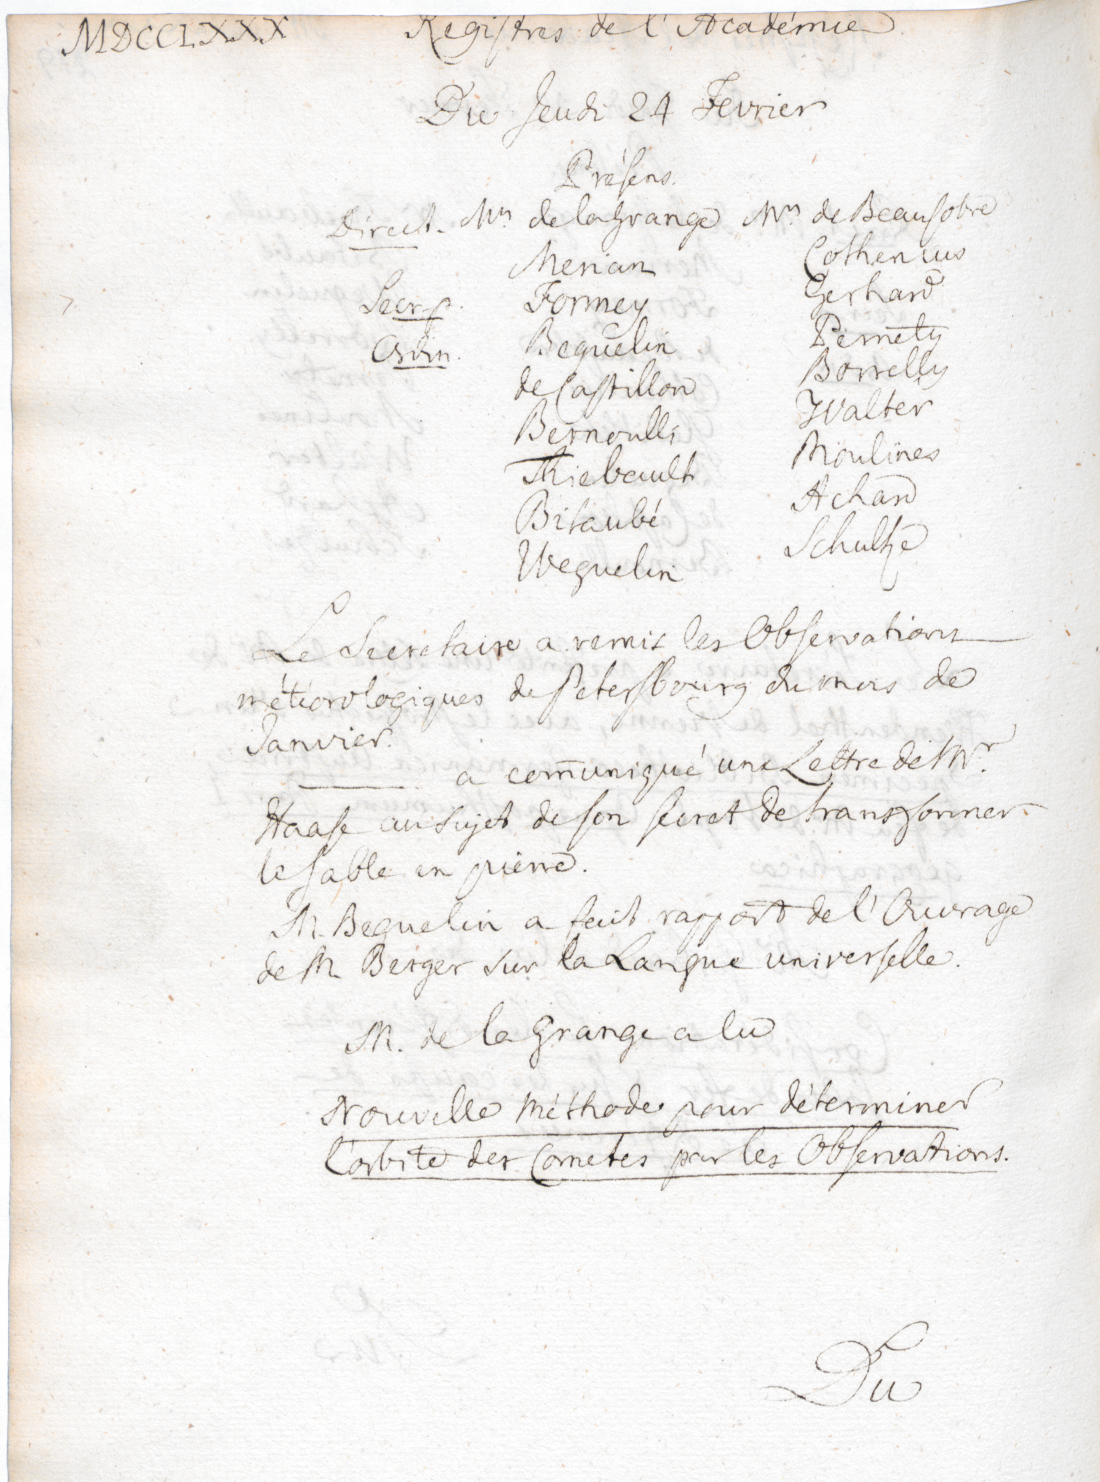 MDCCLXXX Registres de l'Académie
Du Jeudi 24 Fevrier
Présens.
Direct. Mrs de la Grange Mrs de Beausobre
Merian Cothenius
Secr. p. Formey Gerhard
Ordin. Beguelin Pernety
de Castillon Borrelly
Bernoulli Walter
Thiebault Moulines
Bitaubé Achard
Weguelin Schultze
Le Secretaire a remis les Observations
météorologiques de Petersbourg du mois de
Janvier.
——— a com̄uniqué une Lettre de Mr.
Haase au sujet de son secret de transformer
le sable en pierre.
M. Beguelin a fait rapport de l'Ouvrage
de M Berger sur la Langue universelle.
M. de la Grange a lu
Nouvelle Méthode pour déterminer
l'orbite des Cometes par les Observations.
Du